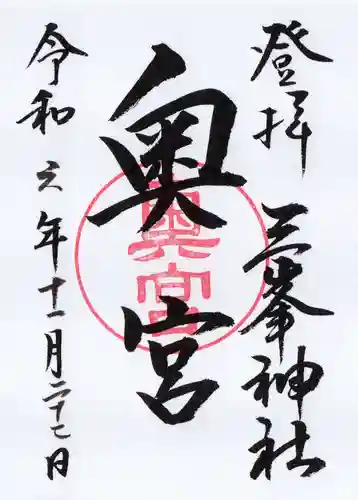 登拝
三峯神社
奥宮
奥宮
令和六年十一月二十七日